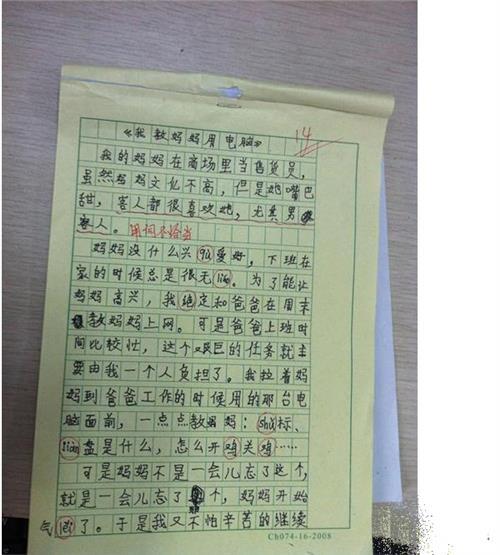 《我教妈妈用电脑》
14
我的妈妈在商场里当售货员，
虽然妈妈文化不高，但是她嘴巴
甜，客人都很喜欢她，尤其男
客人。用词不恰当
妈妈没什么兴qù爱好，下班在
家的时候总是很无liáo。为了能让
妈妈高兴，我绝定和爸爸在周末
教妈妈上网。可是爸爸上班时
间比较忙，这个艰巨的任务就主
要由我一个人负担了。我拉着妈
妈到爸爸工作的时候用的那台电
脑面前，一点点教妈妈：shǔ标、
jiàn盘是什么，怎么开鸡关鸡……
可是妈妈不是一会儿忘了这个，
就是一会儿忘了个，妈妈开始
气了。于是我又不怕辛苦的继续
Ch074-16-2008